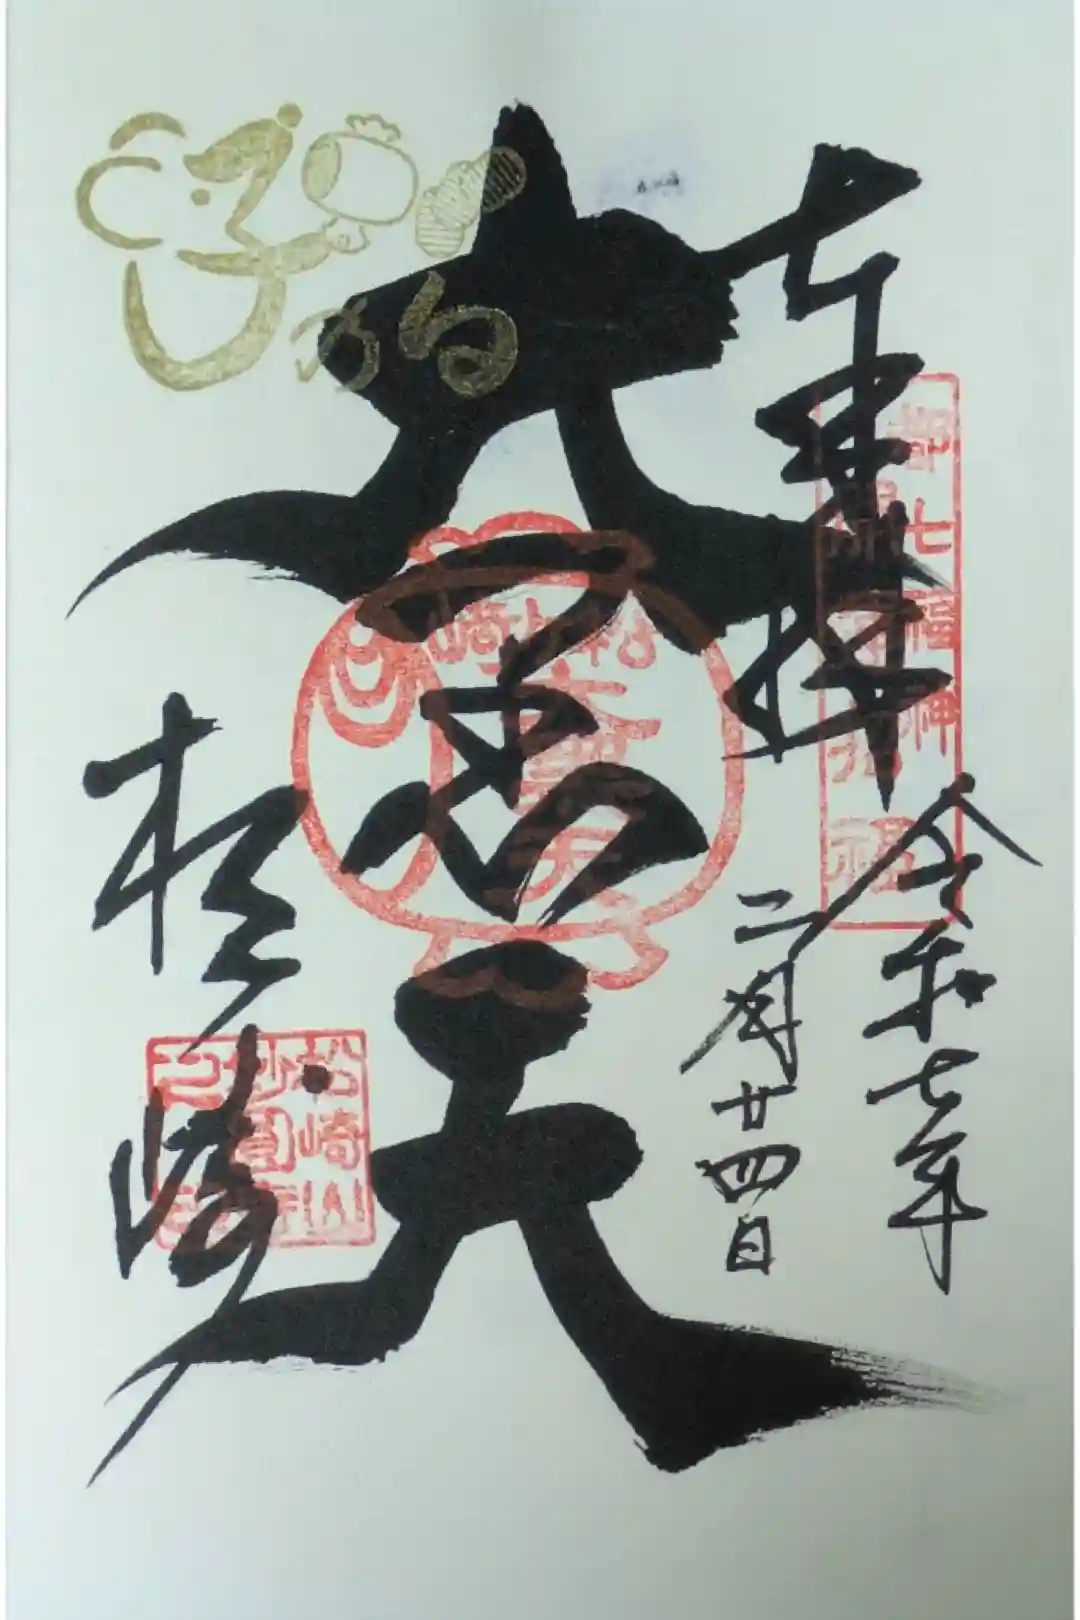 奉拝
都七福神
令和七年
二月廿四日
大黒天
松ヶ崎
大黒天
松崎
松崎山
妙圓寺